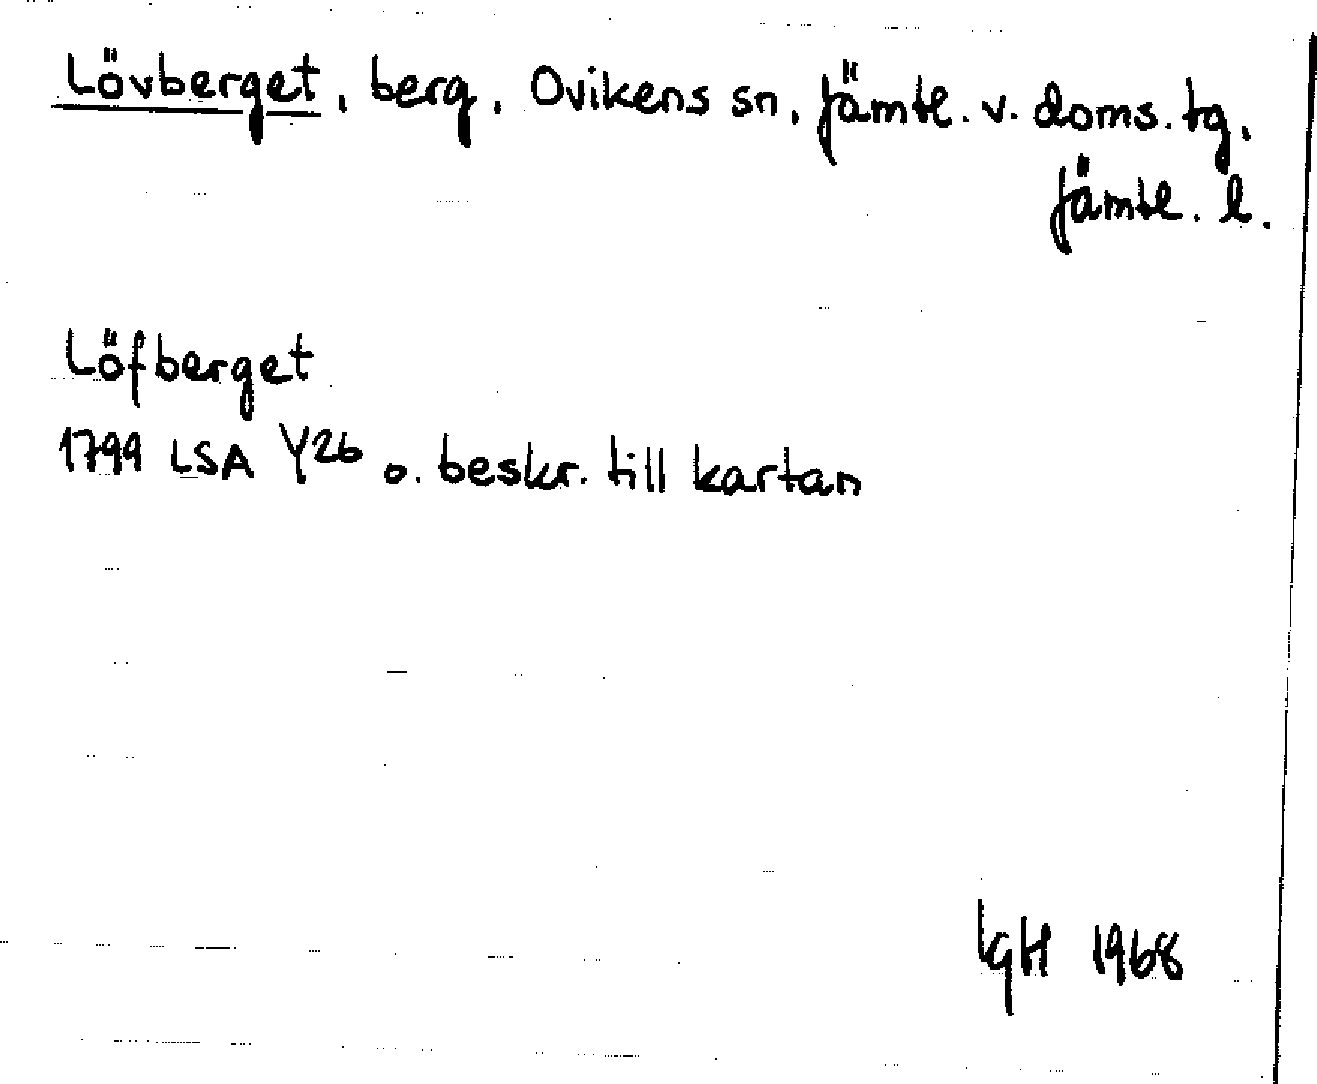 Lövberget, berg, Ovikens sn, Jämtl. v. doms. tg,
Jämtl. l.
Löfberget
1799 LSA Y26 o. beskr. till kartan
IGH 1968